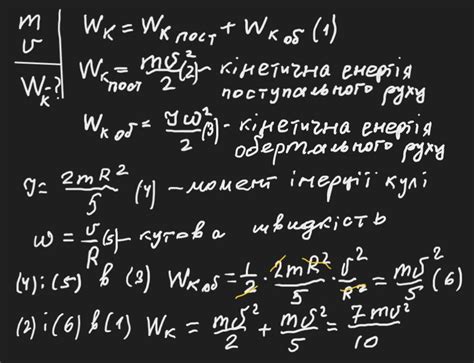 m
υ
W_к-?
W_к = W_к пост + W_к об (1)
W_к пост = mυ²/2 (2) – кінетична енергія
поступального руху
W_к об = Jω²/2 (3) – кінетична енергія
обертального руху
J = 2mR²/5 (4) – момент інерції кулі
ω = υ/R (5) – кутова швидкість
(4) і (5) в (3) W_к об = 1/2 · 2mR²/5 · υ²/R² = mυ²/5 (6)
(2) і (6) в (1) W_к = mυ²/2 + mυ²/5 = 7mυ²/10